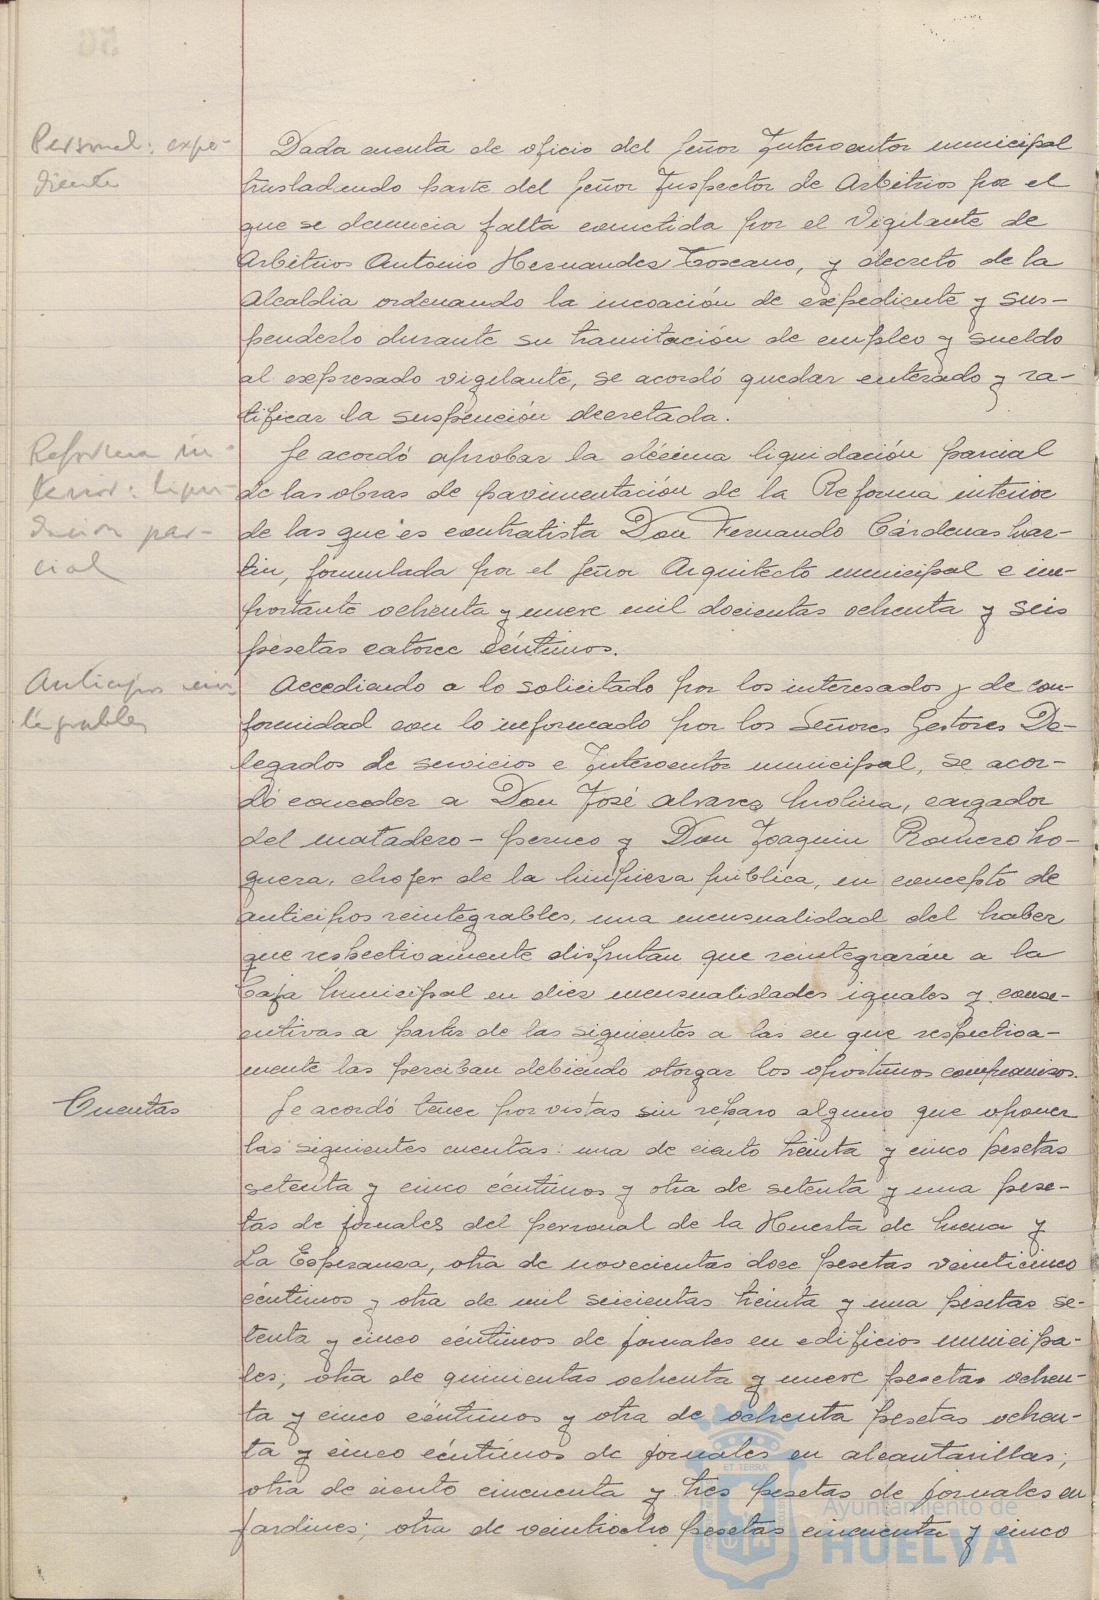 Personal: expe-
diente
Dada cuenta de oficio del Señor Interventor municipal
trasladando parte del Señor Inspector de Arbitrios por el
que se denuncia falta cometida por el Vigilante de
Arbitrios Antonio Hernandez Toscano, y decreto de la
Alcaldia ordenando la incoación de expediente y sus-
penderlo durante su tramitación de empleo y sueldo
al expresado vigilante, se acordó quedar enterado y ra-
tificar la suspención decretada.
Reforma in-
terior: liqui-
dación par-
cial
Se acordó aprobar la décima liquidación parcial
de las obras de pavimentación de la Reforma interior
de las que es contratista Don Fernando Cárdenas Mar-
tin, formulada por el Señor Arquitecto municipal e im-
portante ochenta y nueve mil docientas ochenta y seis
pesetas catorce céntimos.
Anticipos rein
tegrables
Accediendo a lo solicitado por los interesados y de con-
formidad con lo informado por los Señores Gestores De-
legados de servicios e Interventor municipal, se acor-
dó conceder a Don José Alvarez Molina, cargador
del matadero- perneo y Don Joaquin Romero No-
guera, chofer de la limpieza pública, en concepto de
anticipos reintegrables, una mensualidad del haber
que respectivamente disfrutan que reintegrarán a la
Caja Municipal en diez mensualidades iguales y conse-
cutivas a partir de las siguientes a las en que respectiva-
mente las perciban debiendo otorgar los oportunos compromisos.
Cuentas
Se acordó tener por vistas sin reparo alguno que oponer
las siguientes cuentas: una de ciento treinta y cinco pesetas
setenta y cinco céntimos y otra de setenta y una pese-
tas de jornales del personal de la Huerta de Mena y
La Esperanza, otra de novecientas doce pesetas veinticinco
céntimos y otra de mil seicientas treinta y una pesetas se-
tenta y cinco céntimos de jornales en edificios municipa-
les; otra de quinientas ochenta y nueve pesetas ochen-
ta y cinco céntimos y otra de ochenta pesetas ochen-
ta y cinco céntimos de jornales en alcantarillas;
otra de ciento cincuenta y tres pesetas de jornales en
jardines; otra de veintiocho pesetas cincuenta y cinco
ET TERRA
Ayuntamiento de
HUELVA